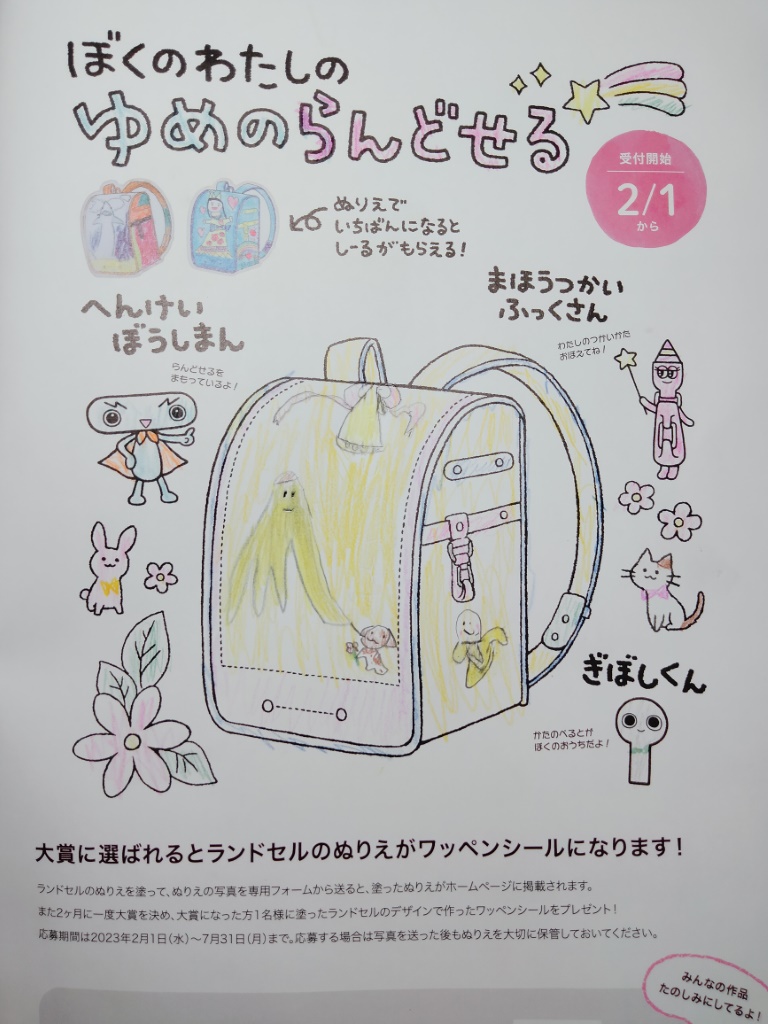 ぼくのわたしの
ゆめのらんどせる
受付開始
2/1
から
ぬりえで
いちばんになると
しーるがもらえる!
へんけい
ぼうしまん
らんどせるを
まもっているよ!
まほうつかい
ふっくさん
わたしのつかいかた
おぼえてね!
ぎぼしくん
かたのべるとが
ぼくのおうちだよ!
大賞に選ばれるとランドセルのぬりえがワッペンシールになります!
ランドセルのぬりえを塗って、ぬりえの写真を専用フォームから送ると、塗ったぬりえがホームページに掲載されます。
また2ヶ月に一度大賞を決め、大賞になった方1名様に塗ったランドセルのデザインで作ったワッペンシールをプレゼント!
応募期間は2023年2月1日(水)〜7月31日(月)まで。応募する場合は写真を送った後もぬりえを大切に保管しておいてください。
みんなの作品
たのしみにしてるよ!